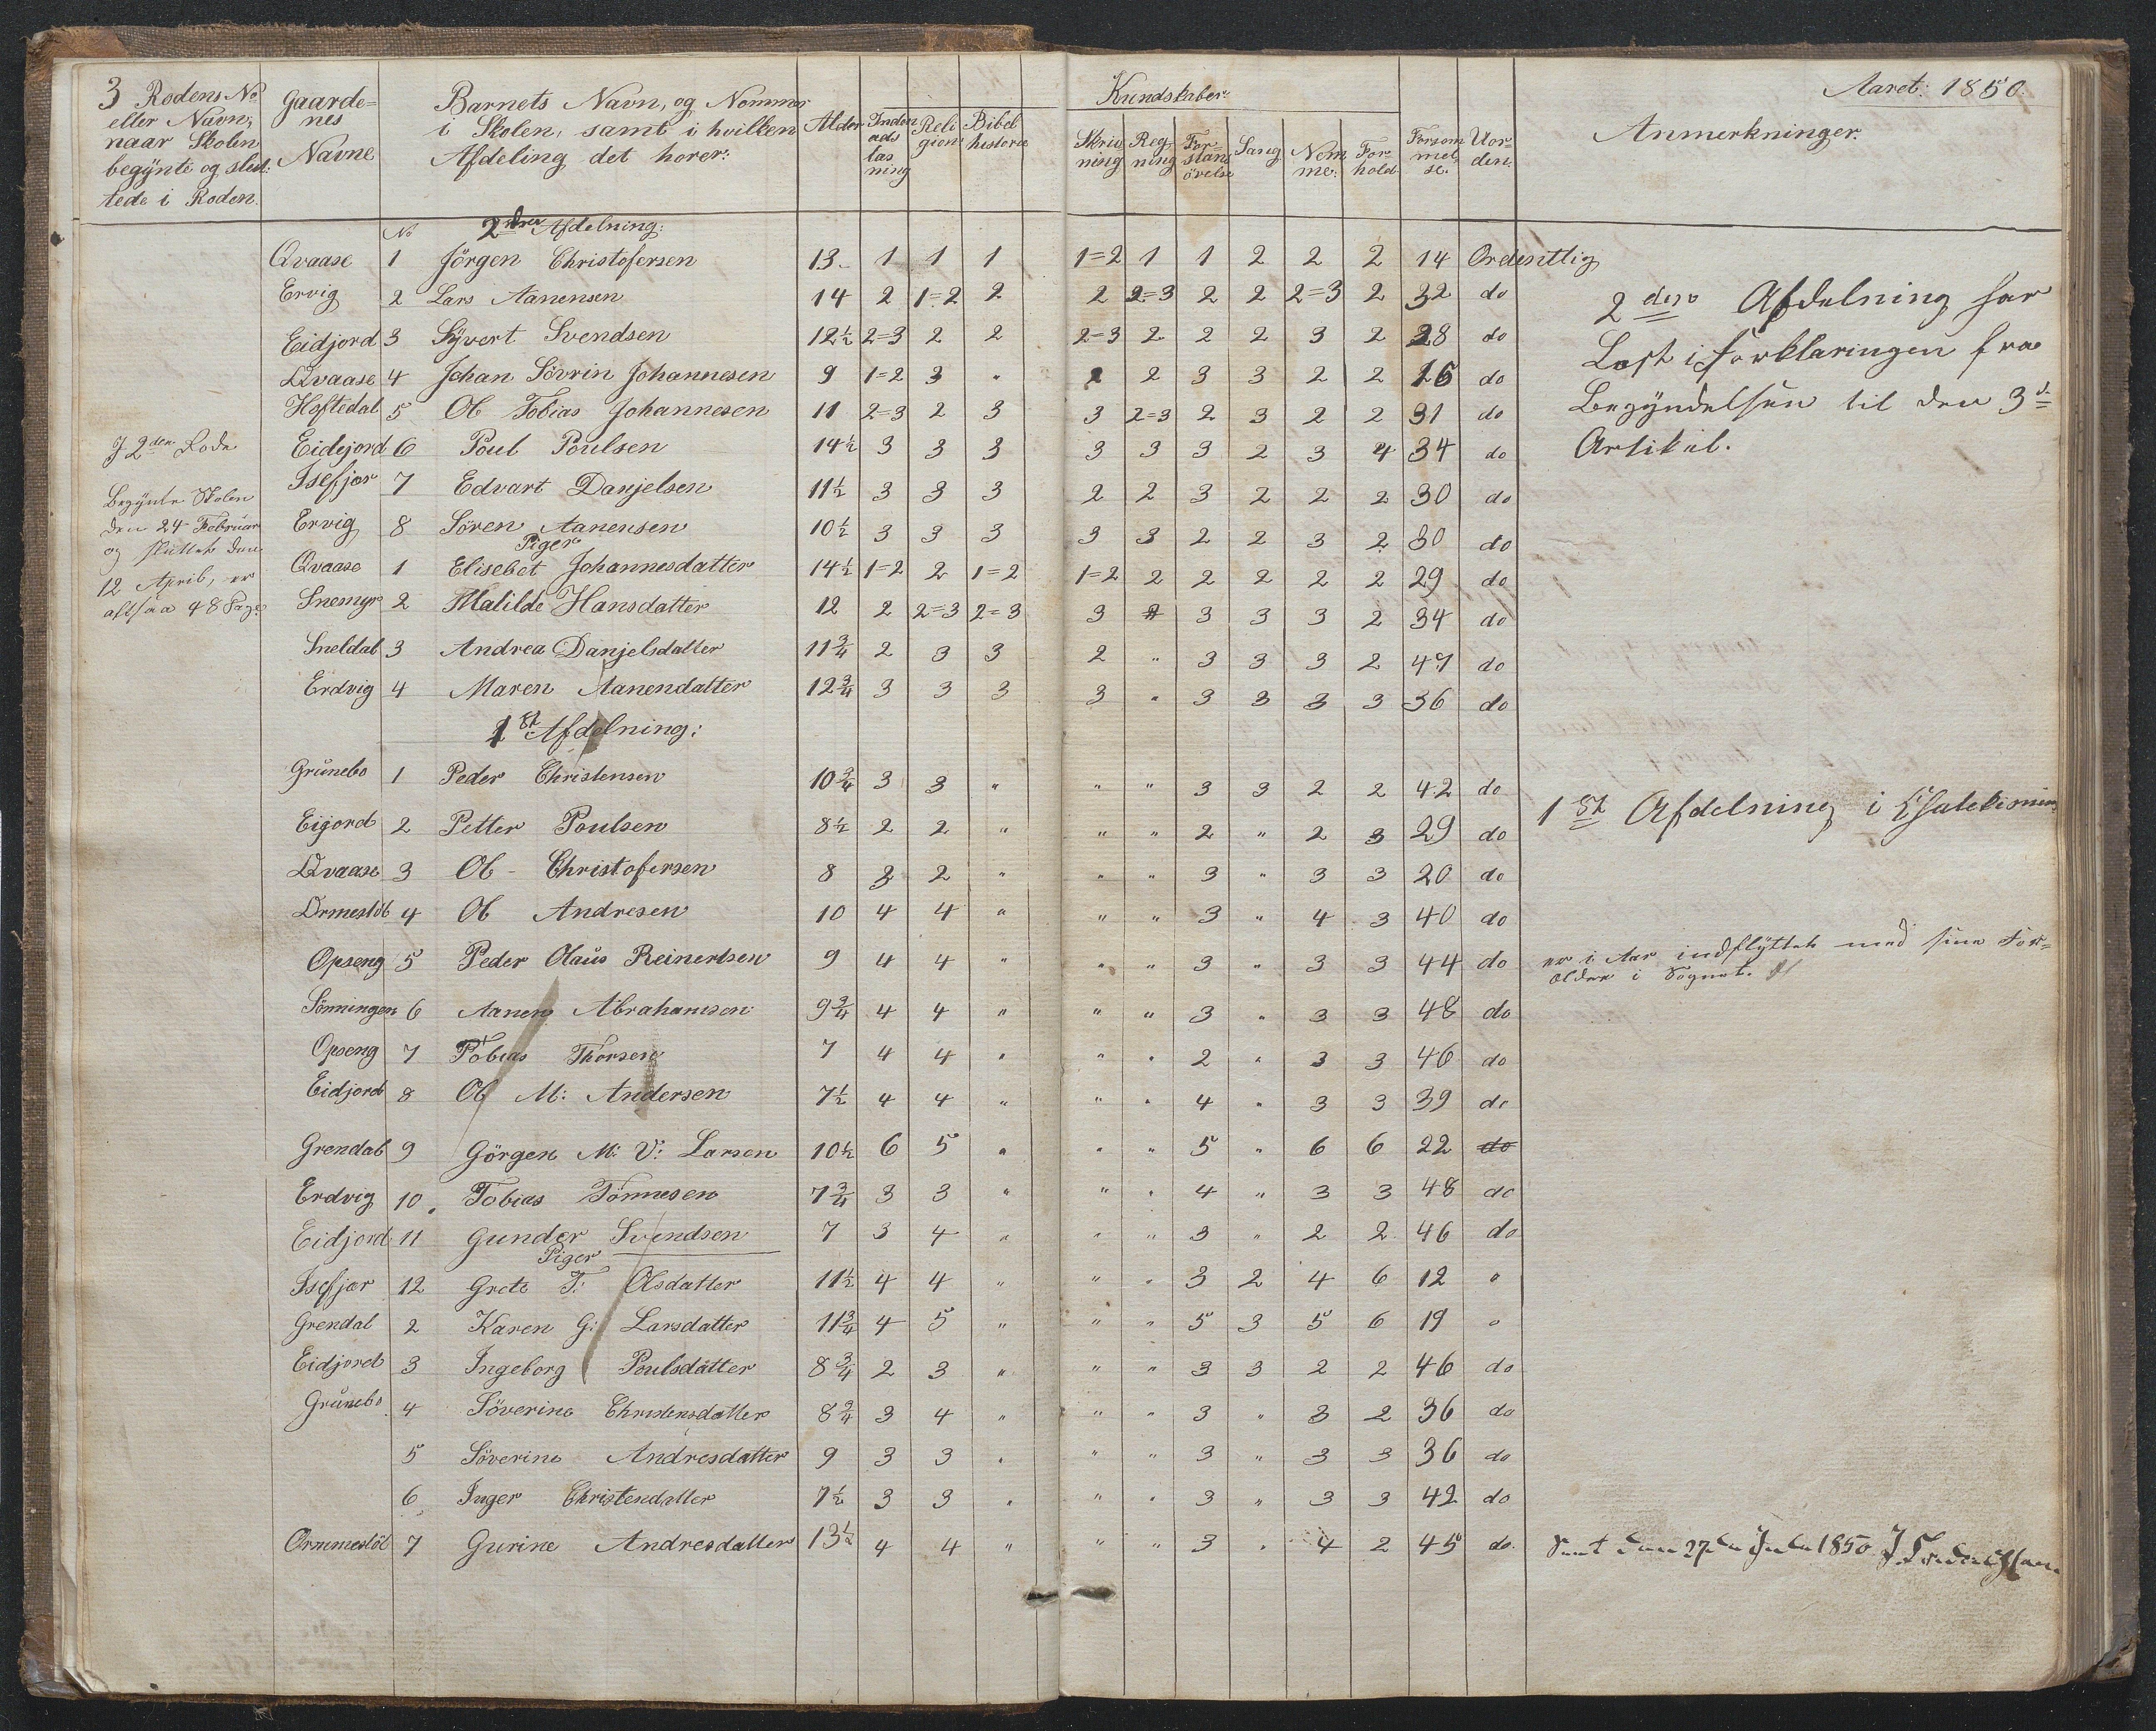 3 Rodens No eller Navn, naar Skolen begÿnte og slut-tede i Roden.
Gaarde=nes Navne
Barnets Navn, og Nommer i Skolen, samt i hvilken Afdeling det horer:
Alder
Inden ads læs ning
Reli gion
Bibel historie
Kundskaber
Skriv ning
Reg ning
For= stans övelse
Sang
Nem me:
For= hold
Forsöm mel se.
Uor= den:
Aaret: 1850.
Anmerkninger.
No 2den Afdelning:
Qvaase 1 Jörgen Christofersen 13 1 1 1 1=2 1 1 2 2 2 14 Ordentlig
Ervig 2 Lars Aanensen 14 2 1=2 2 2 2=3 2 2 2=3 2 32 do
2den Afdelning har
Eidjord 3 Sÿvert Svendsen 12½ 2=3 2 2 2=3 2 2 2 3 2 28 do
Læst i Forklaringen fra
Qvaase 4 Johan Sövrin Johannesen 9 1=2 3 " 2 2 3 3 2 2 16 do
Hoftedal 5 Ol Tobias Johannesen 11 2=3 2 3 3 2=3 2 3 2 2 31 do
Begyndelsen til den 3d
Artikel.
I 2den Rode
Eidejord 6 Poul Poulsen 14½ 3 3 3 3 3 3 2 3 4 34 do
Isefjær 7 Edvart Danjelsen 11½ 3 3 3 2 2 3 2 2 2 30 do
Begynte Skolen
den 24 Februar
Ervig 8 Sören Aanensen 10½ 3 3 3 3 3 2 2 3 2 30 do
og sluttet den
Piger
Qvaase 1 Elisebet Johannesdatter 14½ 1=2 2 1=2 1=2 2 2 2 2 2 29 do
12 April, er
altsaa 48 Dage
Snemyr 2 Malilde Hansdatter 12 2 2=3 2=3 3 " 3 3 3 2 34 do
Sneldal 3 Andrea Danjelsdatter 11¾ 2 3 3 2 " 3 3 3 2 47 do
Erdvig 4 Maren Aanendatter 12¾ 3 3 3 3 " 3 3 3 3 36 do
1st Afdelning:
Grünebo 1 Peder Christensen 10¾ 3 3 " " " 3 3 2 2 42 do
1st Afdelning i Chatekismen
Eigord 2 Petter Poulsen 8½ 2 2 " " " 2 " 2 3 29 do
Qvaase 3 Ol Christofersen 8 3 2 " " " 3 " 3 3 20 do
Ormeslöt 4 Ol Andresen 10 4 4 " " " 3 " 4 3 40 do
Opseng 5 Peder Olaüs Reinertsen 9 4 4 " " " 3 " 3 3 44 do
er i Aar indflÿttet med sine For=
ældre i Sognet.
Sönningen 6 Aanen Abrahamsen 9¾ 4 4 " " " 3 " 3 3 48 do
Opseng 7 Tobias Thorsen 7 4 4 " " " 2 " 3 3 46 do
Eidjord 8 Ol M: Andersen 7½ 4 4 " " " 4 " 3 3 39 do
Grendal 9 Görgen M: V: Larsen 10½ 6 5 " " " 5 " 6 6 22 do
Erdvig 10 Tobias Tönnesen 7¾ 3 3 " " " 4 " 3 3 48 do
Eidjord 11 Gunder Svendsen 7 3 4 " " " 3 " 2 2 46 do
Piger
Isefjær 12 Grete T: Olsdatter 11½ 4 4 " " " 3 2 4 6 12 "
Grendal 2 Karen G: Larsdatter 11¾ 4 5 " " " 5 3 5 6 19 "
Eidjord 3 Ingeborg Poulsdatter 8¾ 2 3 " " " 3 3 2 2 46 do
Grünebo 4 Söverine Christensdatter 8¾ 3 4 " " " 3 " 3 2 36 do
5 Söverine Andresdatter 9 3 3 " " " 3 " 3 3 36 do
6 Inger Christendatter 7½ 3 3 " " " 3 " 3 3 42 do
Ommeslöt 7 Gurine Andresdatter 13½ 4 4 " " " 3 " 4 2 45 do.
Seet den 27de Juli 1850